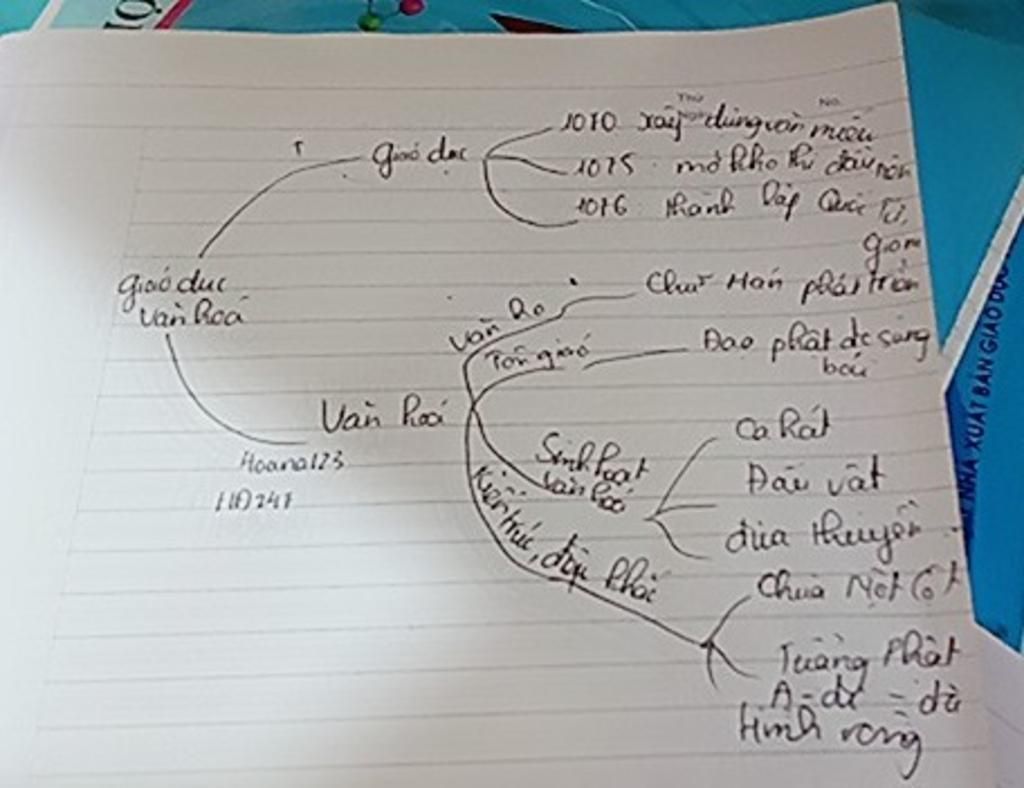 giáo dục
1070 xây dựng văn miếu
1075 mở kho thi đầu tiên
1076 thành lập Quốc Tử
giam
giáo dục
văn hoá
Chữ Hán phát triển
Tôn giáo
Đạo phật đc sùng
bái
Văn hoá
Hoana123
HĐ247
Sinh hoạt
văn hoá
Ca hát
Đấu vật
đua thuyền
Kiến trúc, điêu khắc
Chùa Một Cột
Tượng Phật
A-di-đà
hình rồng
NHÀ XUẤT BẢN GIÁO DỤC